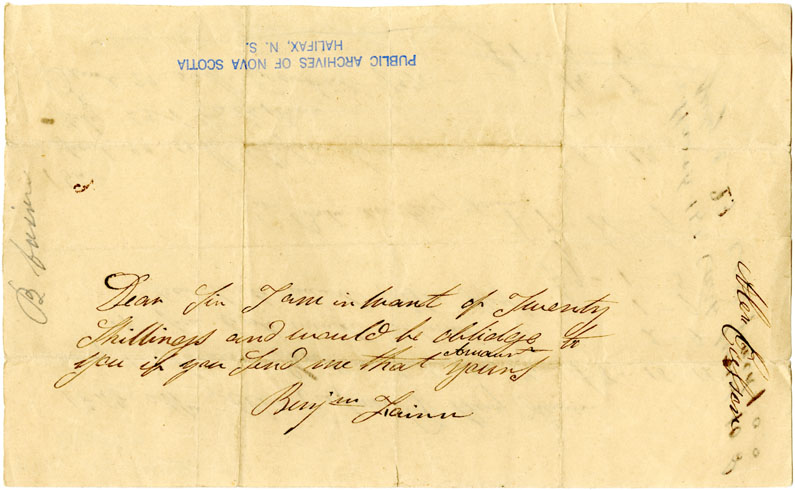 PUBLIC ARCHIVES OF NOVA SCOTIA
HALIFAX, N. S.
Dear Sir I am in want of Twenty
Shillings and would be oblidge to
you if you Send me that Amount yours
Benjan
B